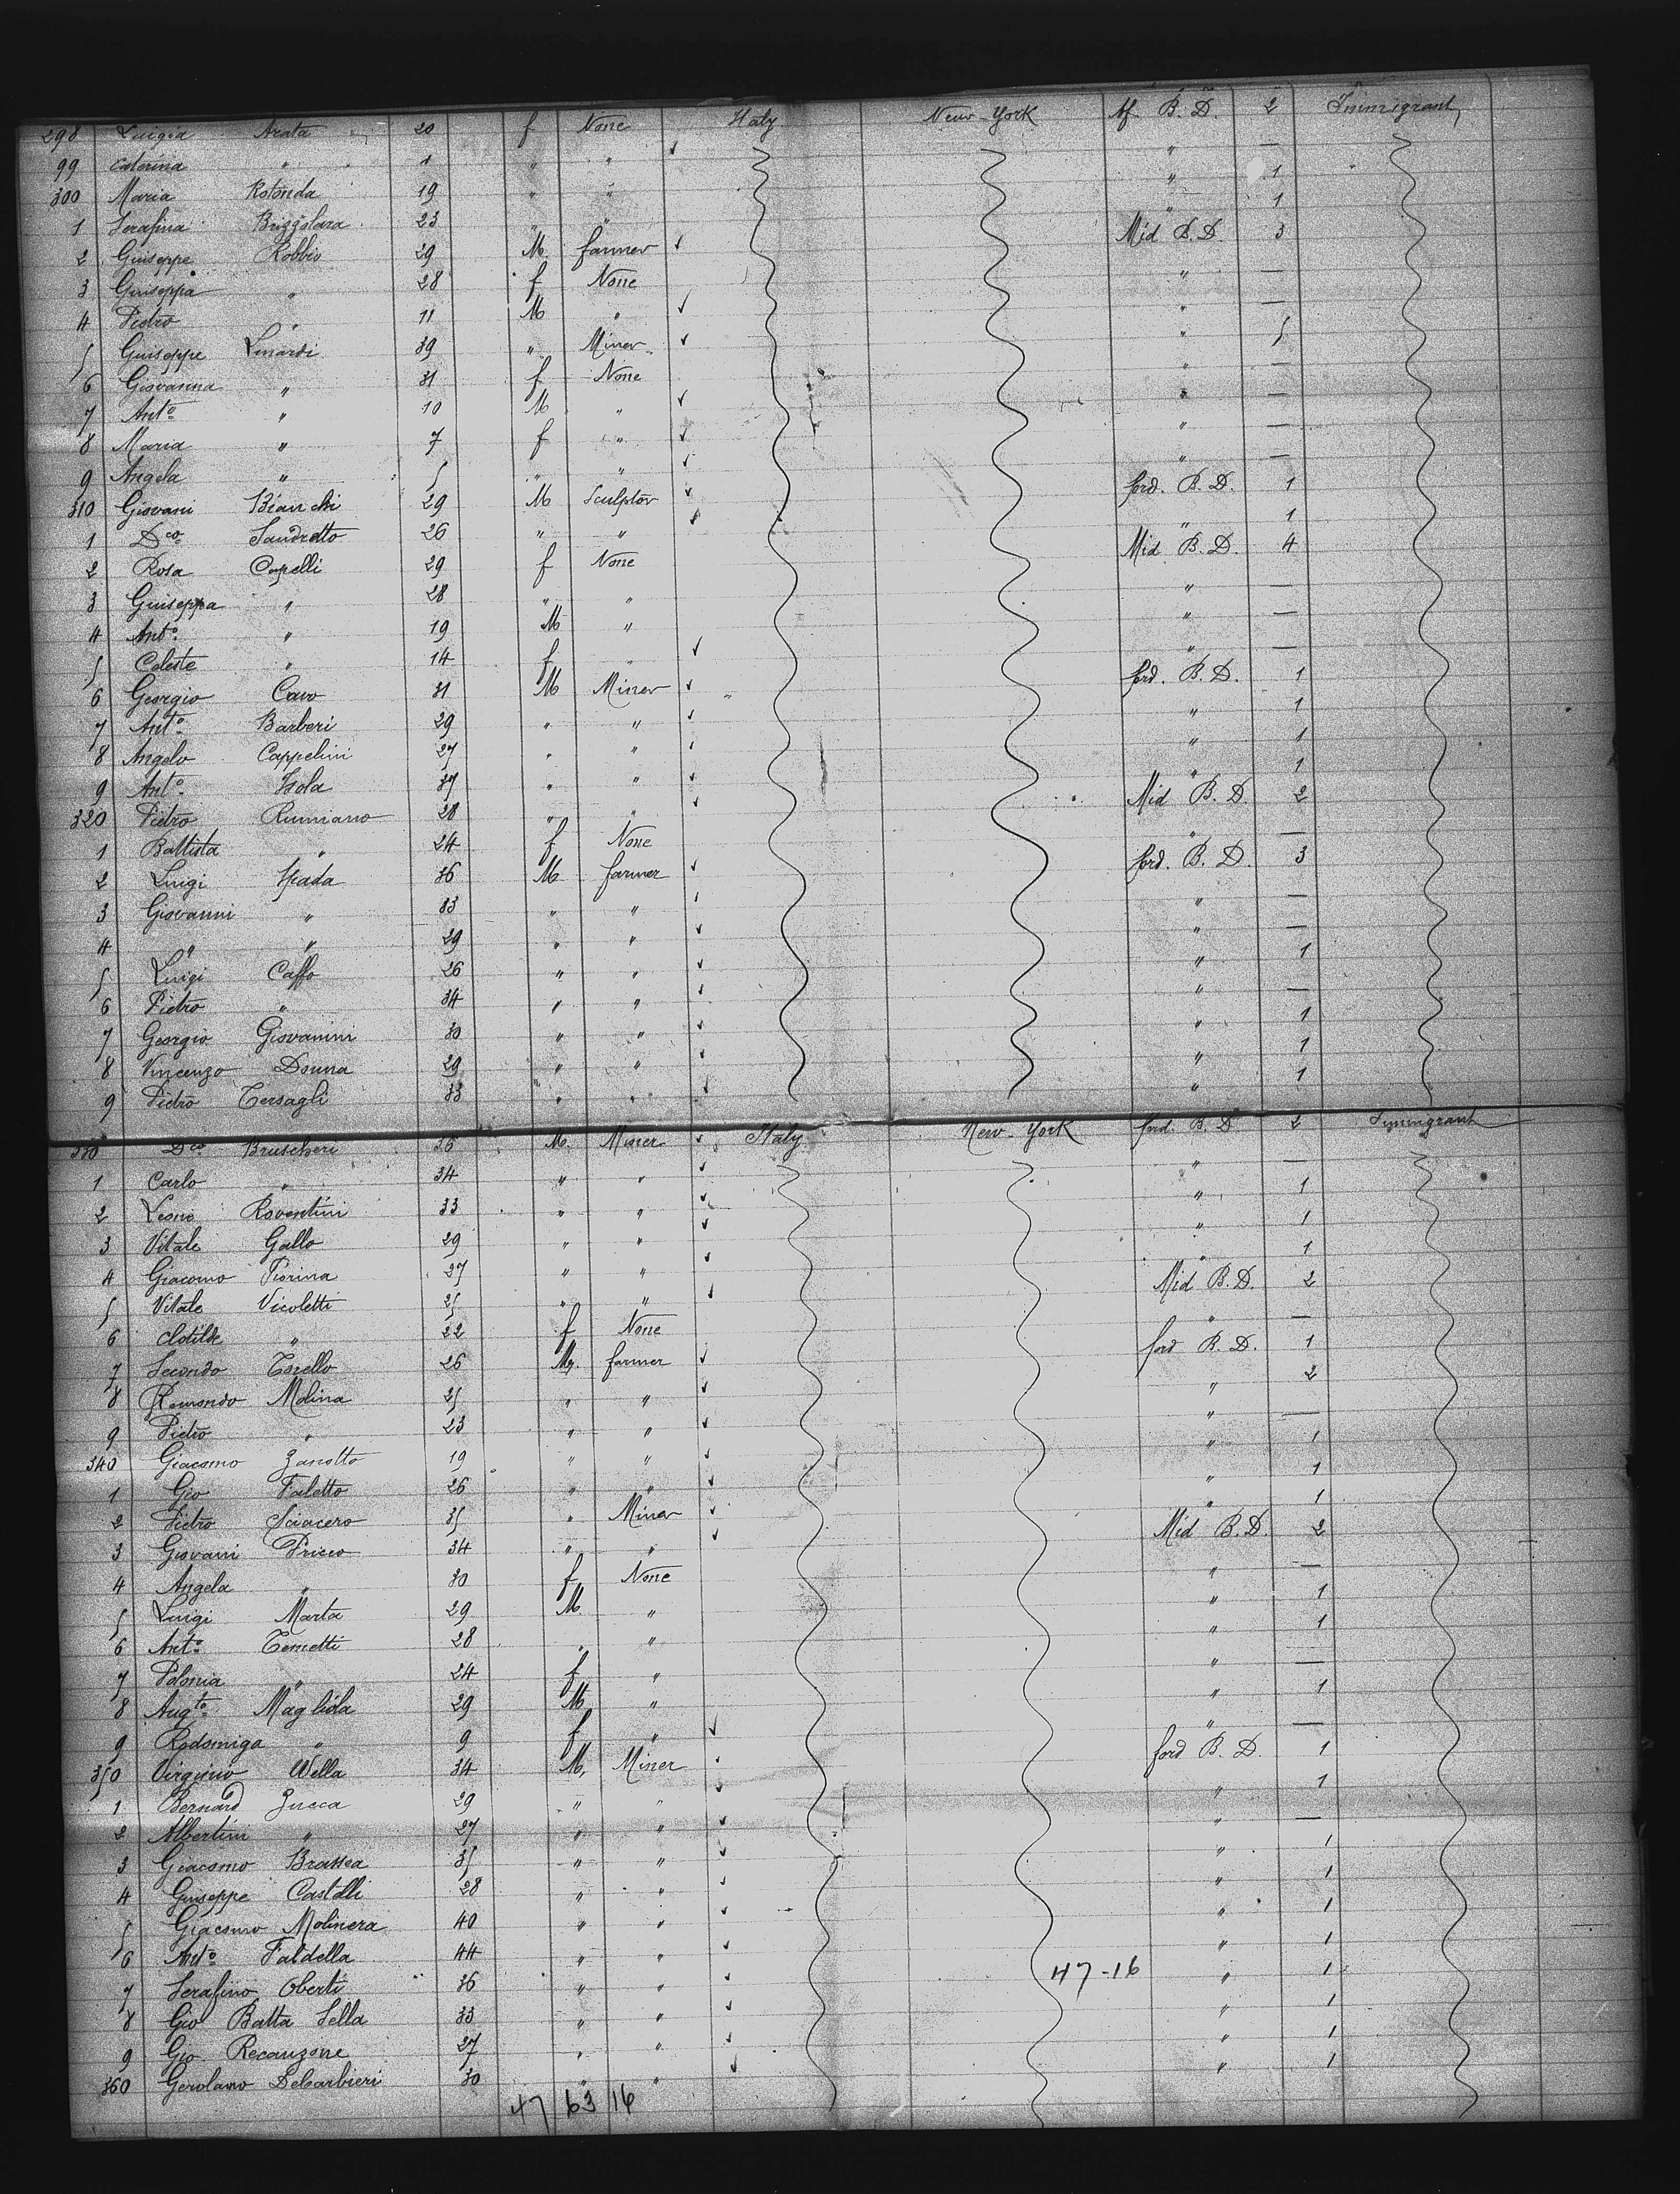 298 Luigia Arata 20 f None Italy New-York Af. B. D. 2 Immigrant
99 Caterina " 1 " " " —
300 Maria Rotonda 19 " " " 1
1 Serafina Brizzolara 23 " " " 1
2 Guiseppe Robbio 29 M. farmer Mid B.D. 3
3 Guiseppa " 28 f None " —
4 Pietro " 11 M " " —
5 Guiseppe Linardi 39 " Miner " 5
6 Giovanna " 31 f None " —
7 Anto " 10 M " " —
8 Maria " 7 f " " —
9 Angela " 5 " " " —
310 Giovani Bianchi 29 M Sculptor ford. B. D. 1
1 Dco Sandretto 26 " " " 1
2 Rosa Capelli 29 f None Mid B. D. 4
3 Guiseppa " 28 " " " —
4 Anto " 19 M " " —
5 Celeste " 14 f " " —
6 Georgio Cavo 31 M Miner ford. B. D. 1
7 Anto Barberi 29 " " " 1
8 Angelo Cappelini 27 " " " 1
9 Anto Isola 37 " " " 1
320 Pietro Rumiano 28 " " Mid B. D. 2
1 Battista " 24 f None " —
2 Luigi Spada 36 M farmer ford. B. D. 3
3 Giovanni " 33 " " " —
4 " " 29 " " " —
5 Luigi Caffo 26 " " " 1
6 Pietro " 34 " " " —
7 Georgio Giovanini 30 " " " 1
8 Vincenzo Donna 29 " " " 1
9 Pietro Tersagli 33 " " " 1
330 Dco Bruscheri 36 M. Miner Italy New-York ford. B. D 2 Immigrant
1 Carlo " 34 " " " —
2 Leono Roventini 33 " " " 1
3 Vitale Gallo 29 " " " 1
4 Giacomo Fiorina 27 " " " 1
5 Vitale Vicoletti 25 " " Mid B. D. 2
6 Clotilde " 22 f None " —
7 Secondo Torello 26 M. farmer ford B. D. 1
8 Remondo Molina 25 " " " 2
9 Pietro " 23 " " " —
340 Giacomo Zanotto 19 " " " 1
1 Gio Faletto 26 " " " 1
2 Pietro Sciacero 35 " Miner " 1
3 Giovani Pricco 34 " " Mid B. D. 2
4 Angela " 30 f None " —
5 Luigi Marta 29 M " " 1
6 Anto Tometti 28 " " " 1
7 Polonia " 24 f " " —
8 Augto Magliola 29 M " " 1
9 Rodomiga " 9 f " " —
350 Virginio Wella 34 M, Miner ford B. D. 1
1 Bernard Zucca 29 " " " 1
2 Albertini " 27 " " " —
3 Giacomo Brassea 35 " " " 1
4 Guiseppe Castelli 28 " " " 1
5 Giacomo Molinera 40 " " " 1
6 Anto Faldella 44 " " " 1
7 Serafino Oberti 36 " " 47-16 " 1
8 Gio Batta Sella 33 " " " 1
9 Gio. Recanzone 27 " " " 1
360 Gerolamo Delbarbieri 30 " " " 1
47 63 16